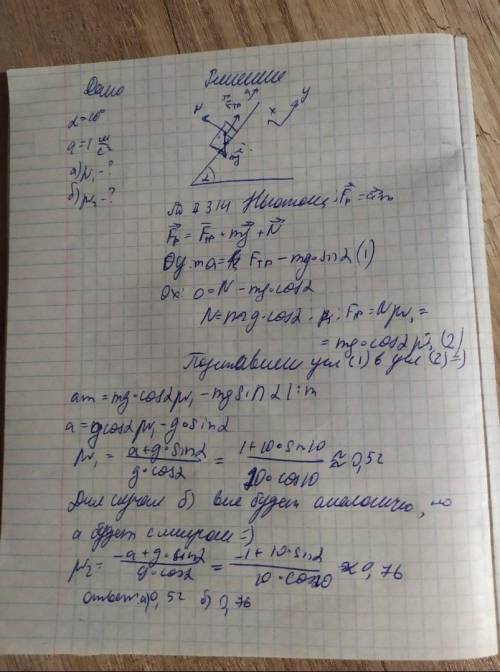 Дано Решение
α=10°
a=1 м/с²
а) μ₁-?
б) μ₂-?
N Fтр a x y
mg
α
По II З.Н Ньютона: F⃗р = a⃗m
F⃗р = F⃗тр + mg⃗ + N⃗
Oy: ma = Fтр - mg·sinα (1)
Ox: 0 = N - mg·cosα
N = mg·cosα ; Fтр = Nμ₁ =
= mg·cosα μ₁ (2)
Подставим ур (1) в ур (2) =)
am = mg·cosα μ₁ - mg sinα |:m
a = g cosα μ₁ - g·sinα
μ₁ = (a+g·sinα)/(g·cosα) = (1+10·sin10)/(10·cos10) ≈ 0,52
Для случая б) все будет аналогично, но
a будет с минусом =)
μ₂ = (-a+g·sinα)/(g·cosα) = (-1+10·sinα)/(10·cos10) ≈ 0,76
ответ: а) 0,52 б) 0,76